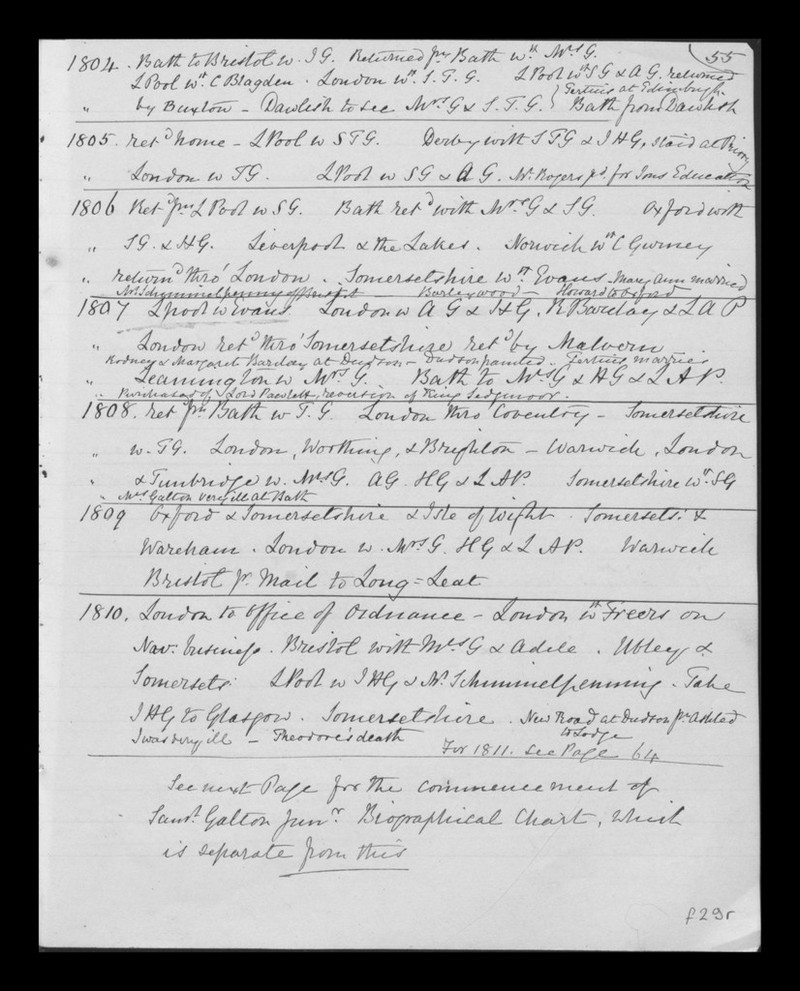 55
1804. Bath to Bristol w. J G. Returned fm Bath wth Mrs G.
L Pool wt C Blagden. London wt. S. T. G. L Pool wt S G & A G. returned
Tertius at Edinburgh.
" by Buxton - Dawlish to see Mrs G & S. T. G. Bath from Dawlish
1805. Retd home - L Pool w S T G. Derby with S T G & J H G, staid at Priory
" London w T G. L Pool w S G & A G. Mr. Rogers pd. for Sons Education
1806 Retd fm L Pool w S G. Bath retd with Mrs G & S G. Oxford with
" S G. & H G. Liverpool & the Lakes. Norwich wt C Gurney
" returnd thro' London. Somersetshire wt Evans. Mary Ann married
Mr Schimmelpenning Barley wood - Howard to Oxford
1807 L pool w Evans London w A G & J H G. R Barclay & L A P
" London retd thro' Somersetshire retd by Malvern
Rodney & Margaret Barclay at Dudson - Dudson painted. Tertius marries
" Leamington w Mrs G. Bath to Mrs G & H G & L A P.
" Purchased of Lord Pawlett, reversion of King Sedgmoor.
1808. ret fm Bath w T. G. London thro' Coventry - Somersetshire
" w. T G. London, Worthing, & Brighton - Warwick, London
" & Tunbridge w. Mrs G. A G. H G & L A P. Somersetshire wt. S G
" Mrs. Galton very ill at Bath
1809 Oxford & Somersetshire & Isle of Wight. Somersets: &
Wareham. London w. Mrs G. H G & L A P. Warwick
Bristol pr. Mail to Long=Leat
1810. London to office of Ordnance - London wt Freers on
Nav: business. Bristol with Mrs G & Adele. Ubley &
Somersets: L Pool w J H G & Mr. Schimmelpenning. Take
J H G to Glasgow. Somersetshire. New Road at Dudson fm Ashted
to Lodge
I was very ill - Theodore's death For 1811. see Page 64
See next Page for the commencement of
Saml. Galton Junr. Biographical Chart, which
is separate from this
f29r